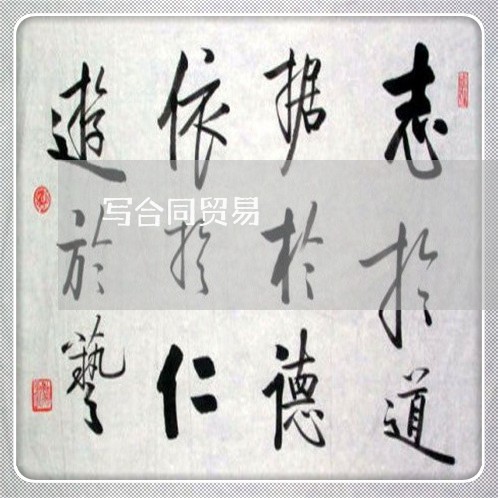 志於道
据於德
依於仁
遊於藝
写合同贸易